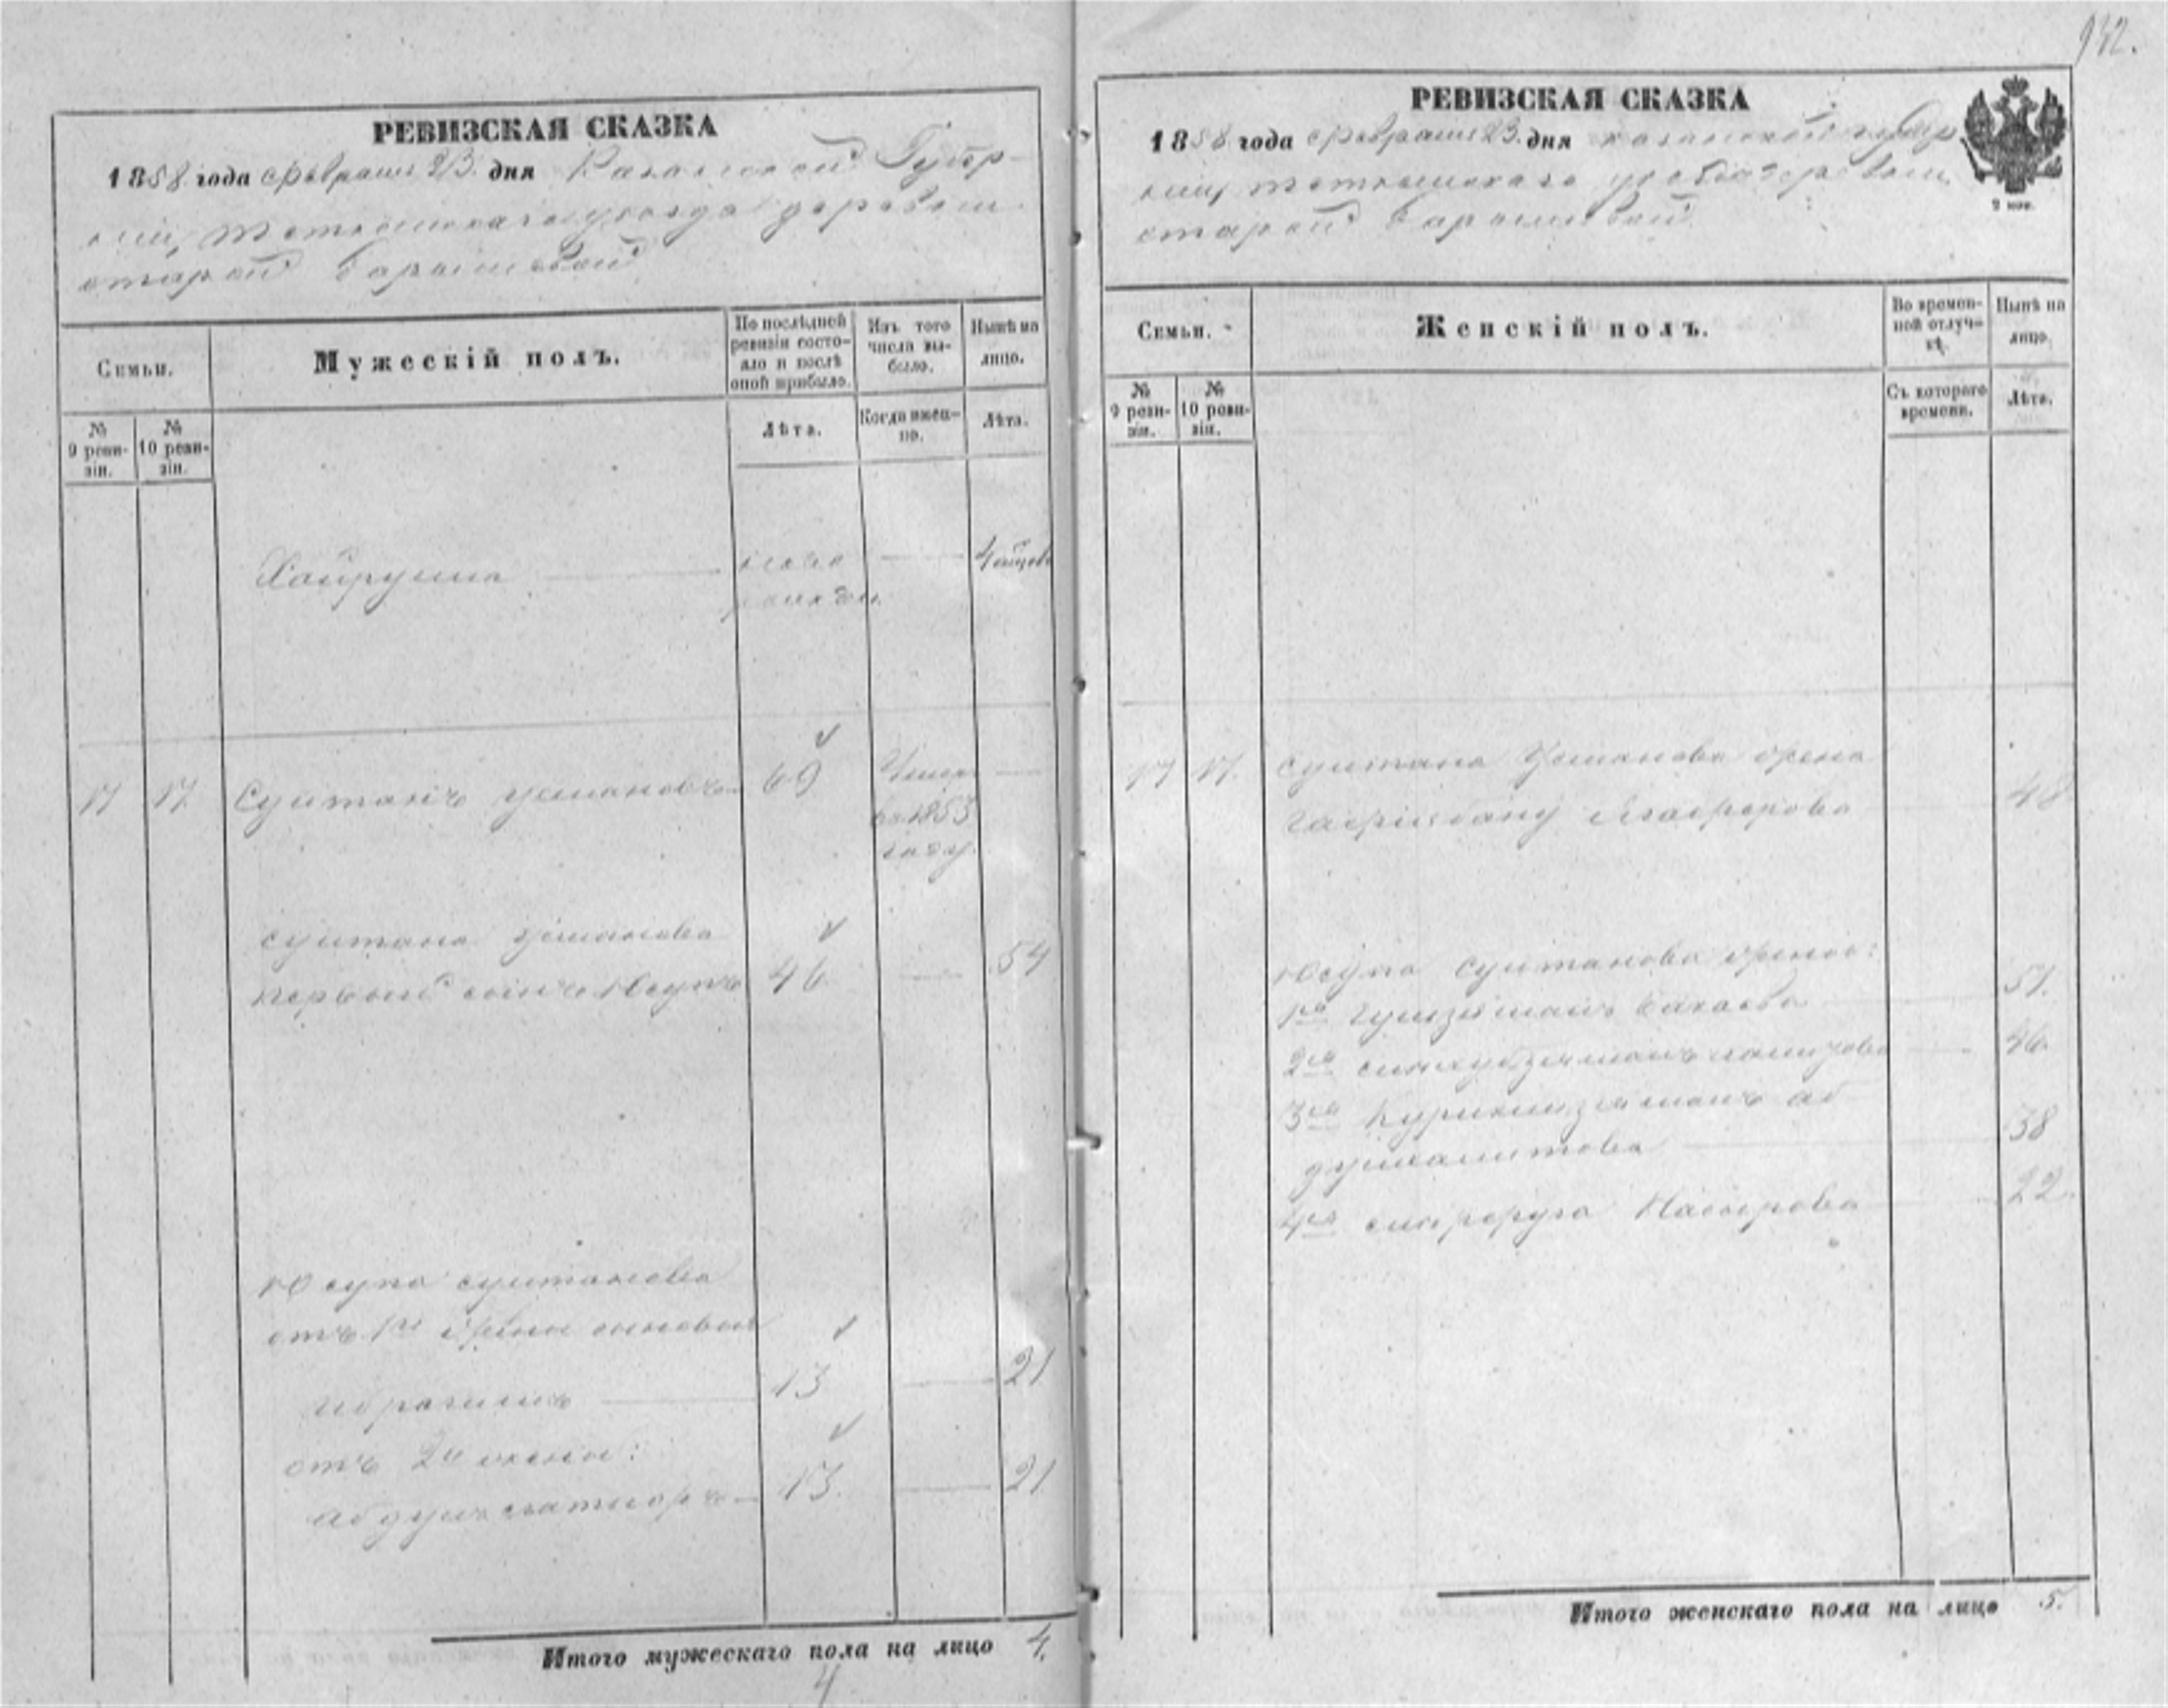 132.
РЕВИЗСКАЯ СКАЗКА
1858 года февраля 23. дня Казанской Губер-
нии, Тетюшскаго уезда деревни
старой Барышевой
Семьи.
Мужескій полъ.
По послѣдней ревизіи состояло и послѣ оной прибыло.
Изъ того числа выбыло.
Нынѣ на лицо.
№ 9 ревизіи.
№ 10 ревизіи.
Лѣта.
Когда именно.
Лѣта.
Хайрулла
ново
рожден.
4
17 17 Султанъ Усмановъ 69 Умеръ
въ 1853
году.
Султана Усманова
первый сынъ Юсупъ 46 54
Юсупа Султанова
отъ 1й жены сыновья
Ибрагимъ 13 21
отъ 2й жены:
Абдулъ 13. 21
Итого мужескаго пола на лицо 4.
4
РЕВИЗСКАЯ СКАЗКА
1858 года февраля 23. дня Казанской Губер
нии, Тетюшскаго уезда деревни
старой Барышевой
2 коп.
Семьи.
Женскій полъ.
Во временной отлучкѣ.
Нынѣ на лицо.
№ 9 ревизіи.
№ 10 ревизіи.
Съ котораго времени.
Лѣта.
17 17. Султана Усманова жена
48
Юсупа Султанова жены:
1я 51.
2я 46.
3я аб
38
4я Насырова 22.
Итого женскаго пола на лицо 5.